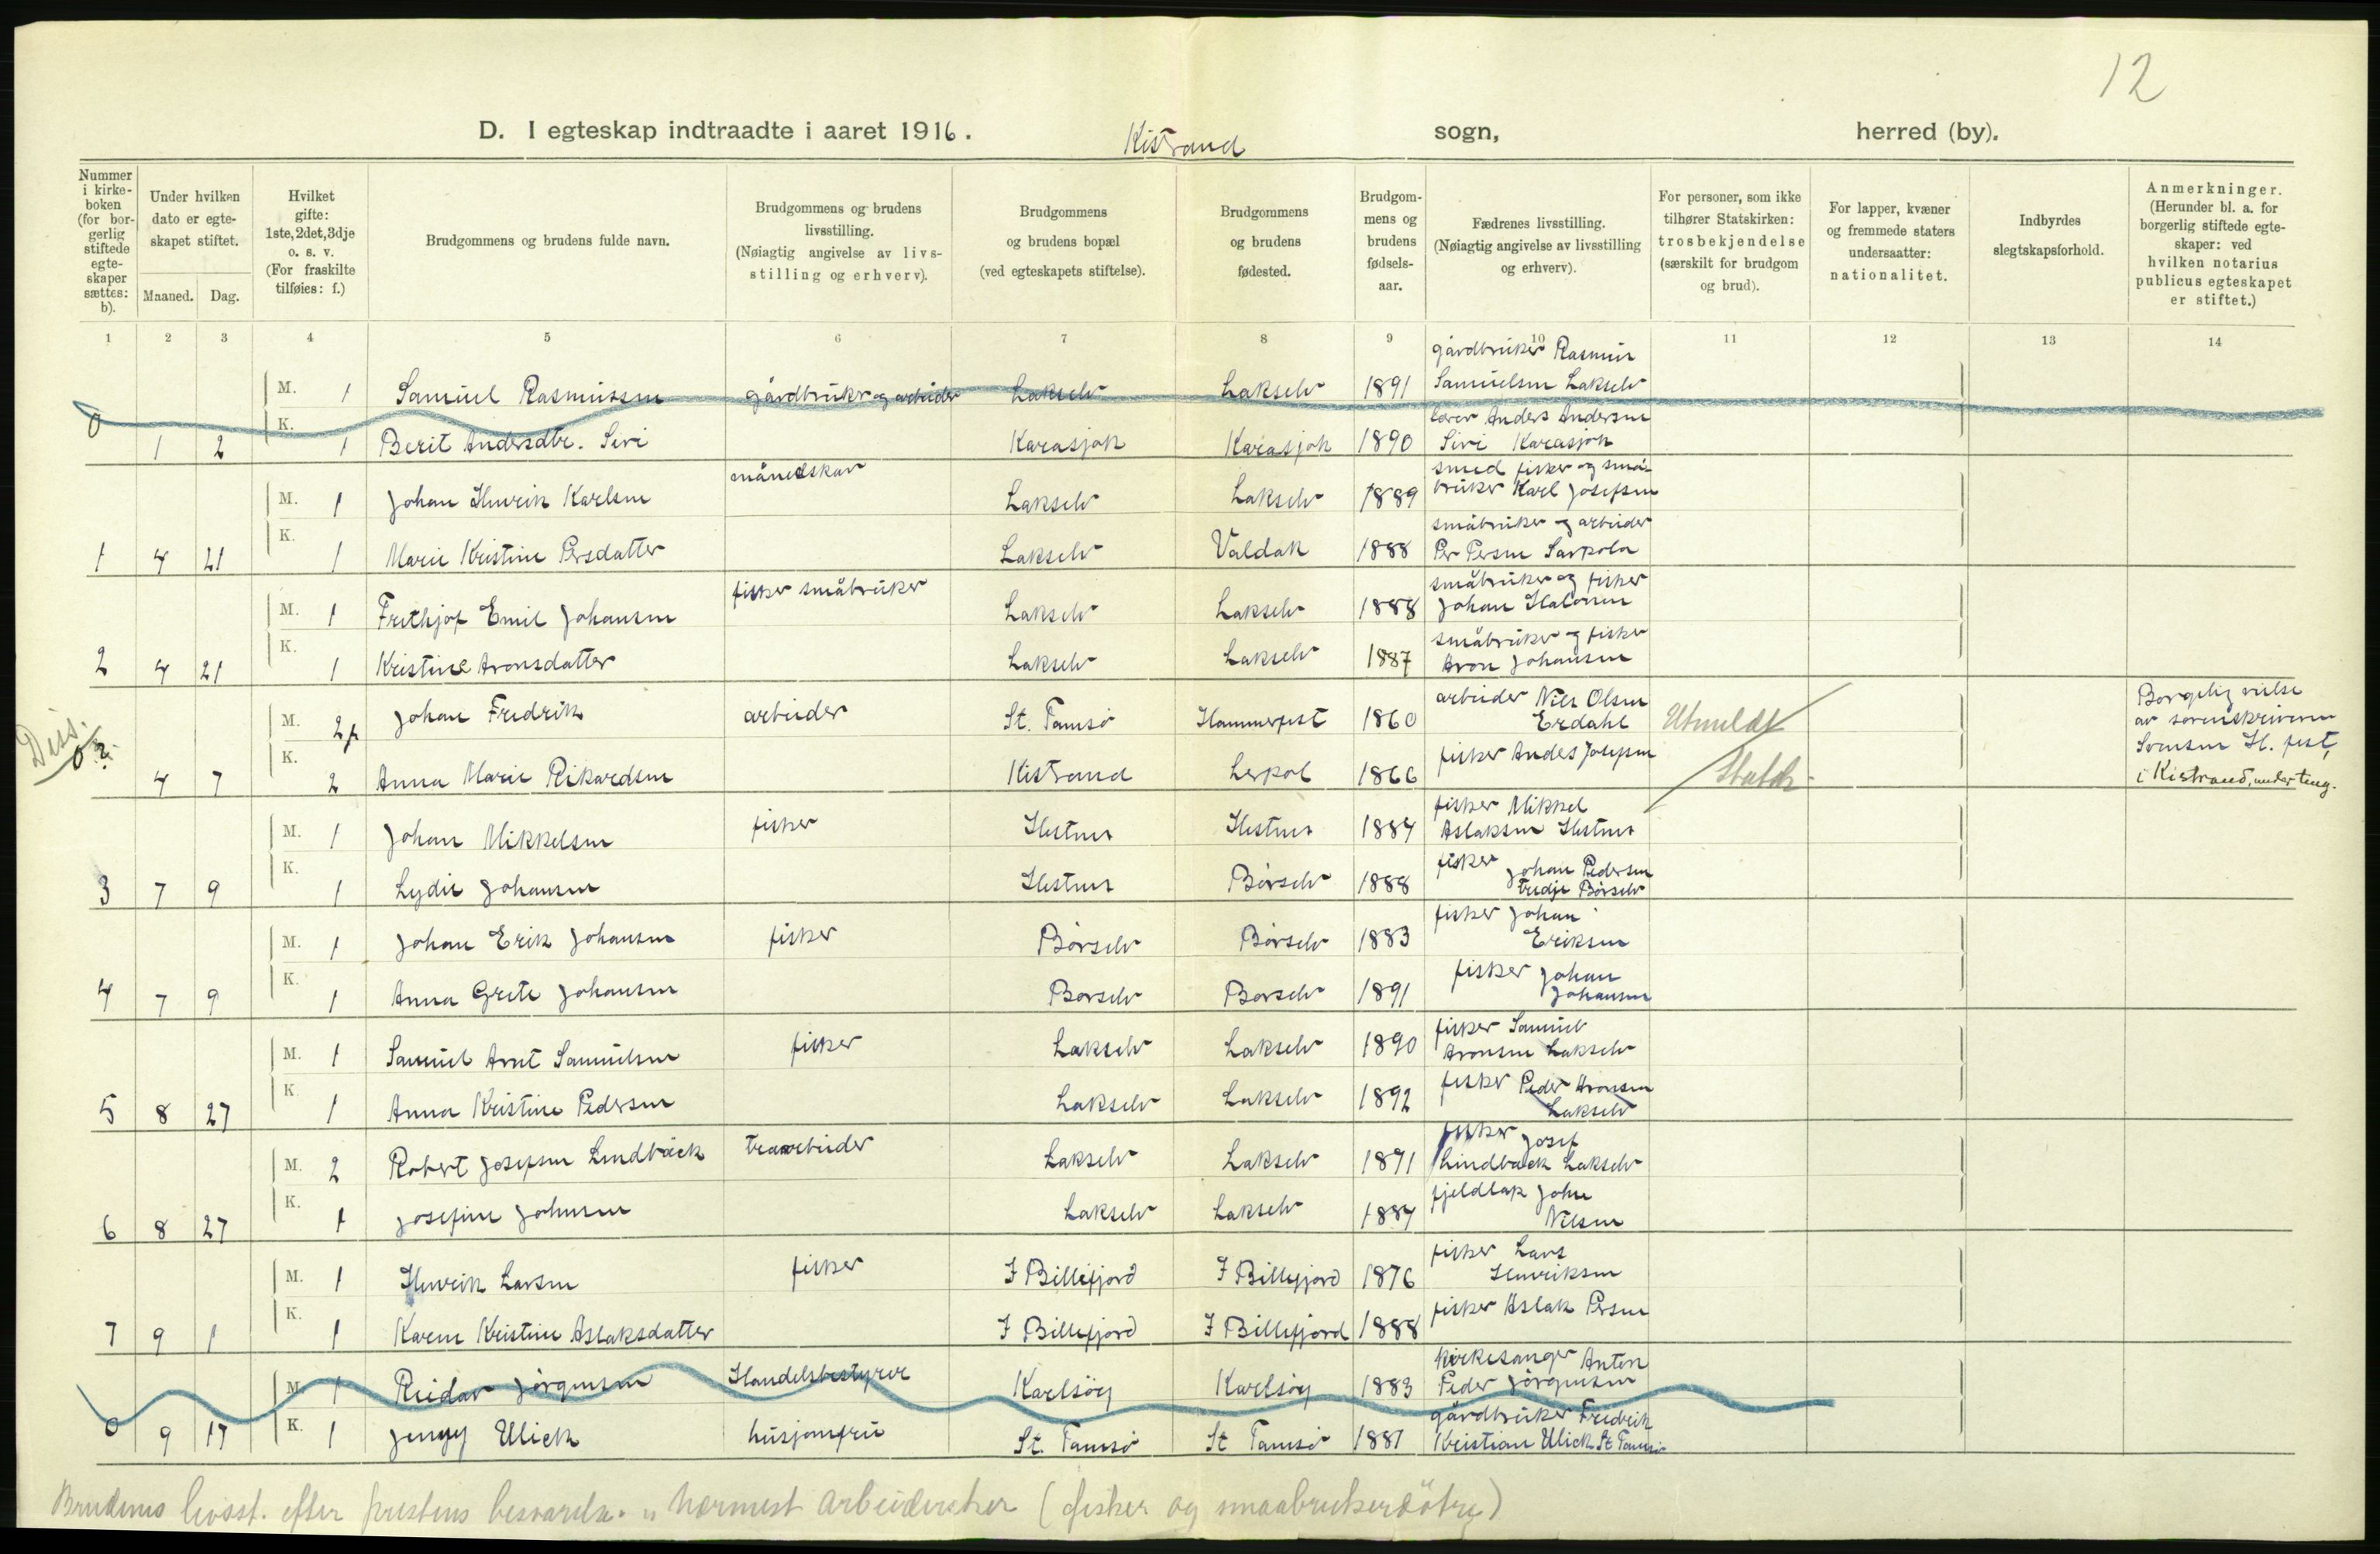 12
D. I egteskap indtraadte i aaret 1916. Kistrand sogn, herred (by).
Nummer i kirkeboken (for borgerlig stiftede egteskaper sættes: b).
Under hvilken dato er egteskapet stiftet.
Maaned. Dag.
Hvilket gifte: 1ste, 2det, 3dje o. s. v. (For fraskilte tilføies: f.)
Brudgommens og brudens fulde navn.
Brudgommens og brudens livsstilling. (Nøiagtig angivelse av livsstilling og erhverv).
Brudgommens og brudens bopæl (ved egteskapets stiftelse).
Brudgommens og brudens fødested.
Brudgommens og brudens fødselsaar.
Fædrenes livsstilling. (Nøiagtig angivelse av livsstilling og erhverv).
For personer, som ikke tilhører Statskirken: trosbekjendelse (særskilt for brudgom og brud).
For lapper, kvæner og fremmede staters undersaatter: nationalitet.
Indbyrdes slegtskapsforhold.
Anmerkninger. (Herunder bl. a. for borgerlig stiftede egteskaper: ved hvilken notarius publicus egteskapet er stiftet.)
1 2 3 4 5 6 7 8 9 10 11 12 13 14
M. 1 Samuel Rasmussen gårdbruker og arbeider Lakselv Lakselv 1891 gårdbruker Rasmus Samuelsen Lakselv
0 1 2 K. 1 Berit Andersdtr. Siri Karasjok Karasjok 1890 lærer Anders Andersen Siri Karasjok
M. 1 Johan Henrik Karlsen månedskar Lakselv Lakselv 1889 smed fisker og småbruker Karl Josefsen
1 4 21 K. 1 Marie Kristine Persdatter Lakselv Valdak 1888 småbruker og arbeider Per Persen Sarpola
M. 1 Frithjof Emil Johansen fisker småbruker Lakselv Lakselv 1888 småbruker og fisker Johan Halonen
2 4 21 K. 1 Kristine Aronsdatter Lakselv Lakselv 1887 småbruker og fisker Aron Johansen
Diss. 0 ?
M. 2f Johan Fredrik arbeider St. Tamsö Hammerfest 1860 arbeider Nils Olsen Erdahl Utmeldt Borgelig vielse av sorenskriveren Svensen H.fest, i Kistrand, under ting.
4 7 K. 2 Anna Marie Rikardsen Kistrand Lerpol 1866 fisker Andes Josefsen Statsk.
M. 1 Johan Mikkelsen fisker Hestnes Hestnes 1884 fisker Mikkel Aslaksen Hestnes
3 7 9 K. 1 Lydie Johansen Hestnes Börselv 1888 fisker Johan Pedersen tredje Börselv
M. 1 Johan Erik Johansen fisker Börselv Börselv 1883 fisker Johan Eriksen
4 7 9 K. 1 Anna Grete Johansen Börselv Börselv 1891 fisker Johan Johansen
M. 1 Samuel Arnt Samuelsen fisker Lakselv Lakselv 1890 fisker Samuel Aronsen Lakselv
5 8 27 K 1 Anna Kristine Pedersen Lakselv Lakselv 1892 fisker Peder Aronsen Lakselv
M. 2 Robert Josefsen Lindbäck træarbeider Lakselv Lakselv 1871 fisker Josef Lindbäck Lakselv
6 8 27 K. 1 Josefine Johnsen Lakselv Lakselv 1884 fjeldlap John Nilsen
M. 1 Henrik Larsen fisker I Billefjord I Billefjord 1876 fisker Lars Henriksen
7 9 1 K. 1 Karen Kristine Aslaksdatter I Billefjord I Billefjord 1888 fisker Aslak Persen
M. 1 Reidar Jörgensen Handelsbestyrer Karlsöy Karlsöy 1883 kirkesanger Anton Peder Jörgensen
0 9 17 K. 1 Jenny Ulich husjomfru St. Tamsö St Tamsö 1881 gårdbruker Fredrik Kristian Ulich St Tamsö
Brudenes livsst. efter prestens besvarelse. „nærmest arbeidersker (fisker og smaabrukerdötre)